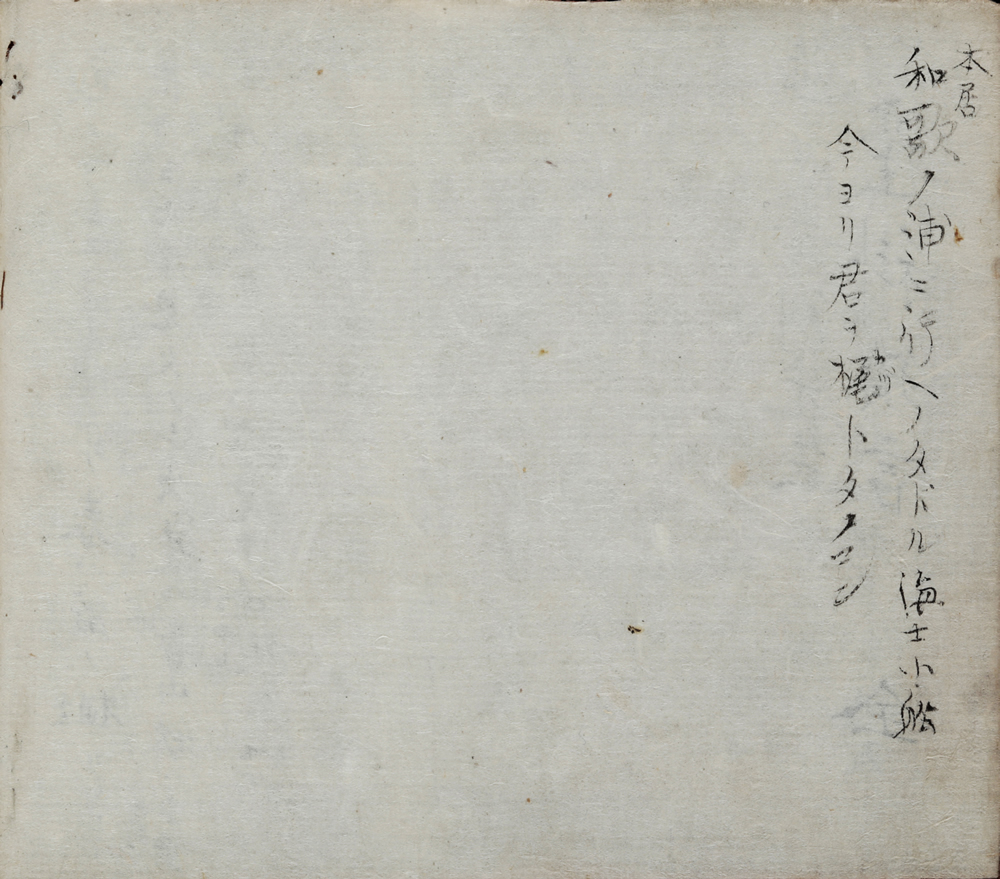 本居
和歌ノ浦ニ行ヘノタドル海士小舩
今ヨリ君ヲ楫トタノマン